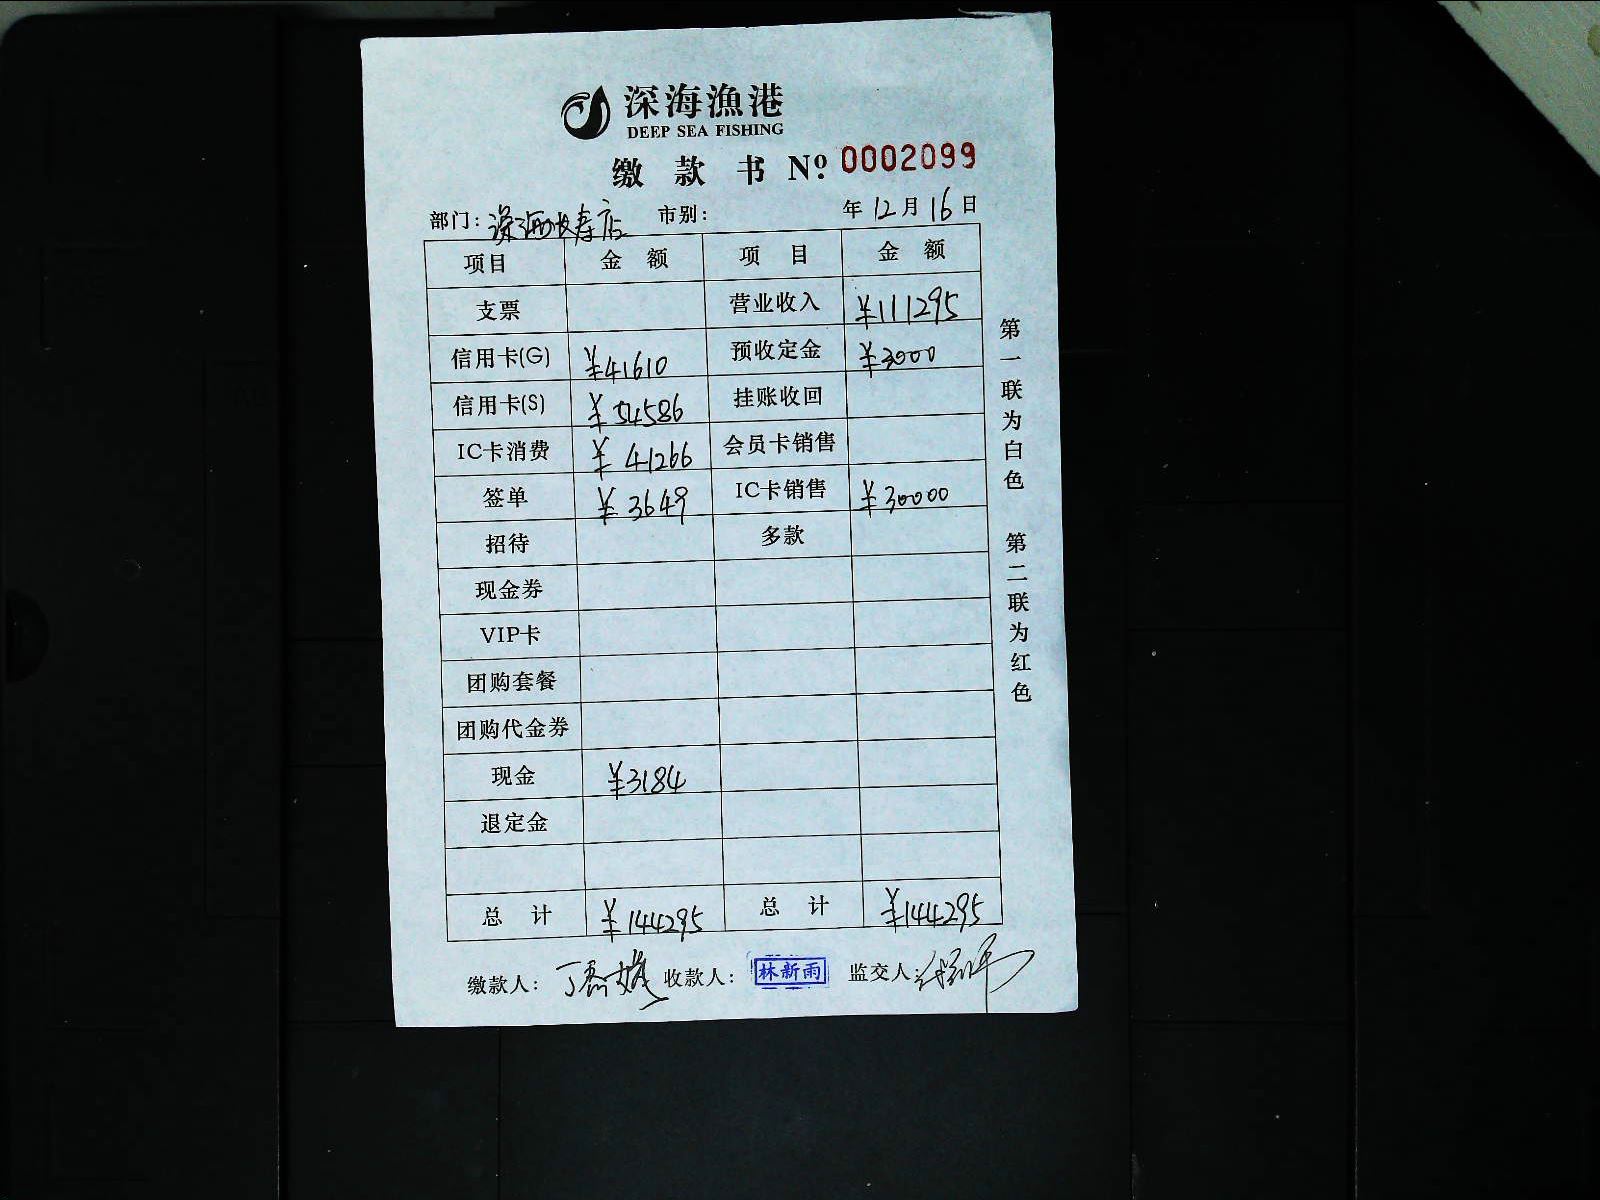 深海漁港
DEEP SEA FISHING
缴款书 Nº 0002099
部门: 深海长寿店 市别: 年12月16日
项目 金额 项目 金额
支票 营业收入 ¥111295
信用卡(G) ¥41610 预收定金 ¥3000
信用卡(S) ¥54586 挂账收回
IC卡消费 ¥41266 会员卡销售
签单 ¥3649 IC卡销售 ¥30000
招待 多款
现金券
VIP卡
团购套餐
团购代金券
现金 ¥3184
退定金
总计 ¥144295 总计 ¥144295
缴款人: 收款人: 林新雨 监交人:
第一联为白色 第二联为红色